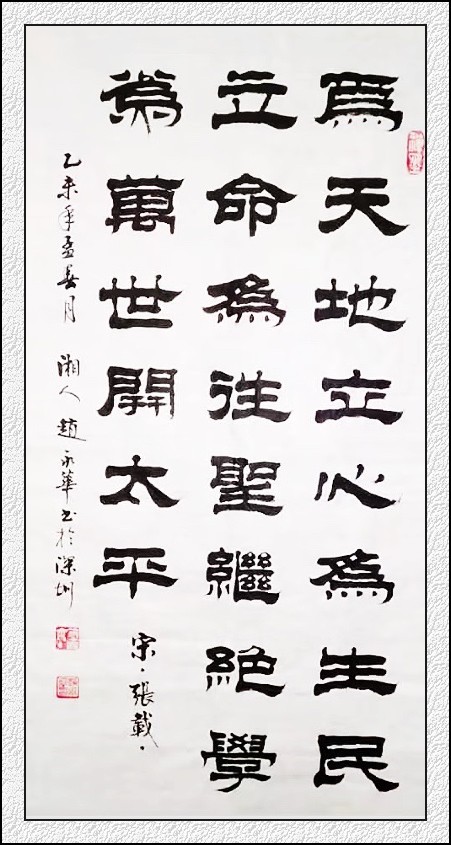 爲天地立心爲生民
立命爲往聖繼絶學
爲萬世開太平
宋·張載·
乙未年孟春月 湘人趙永華书於深圳